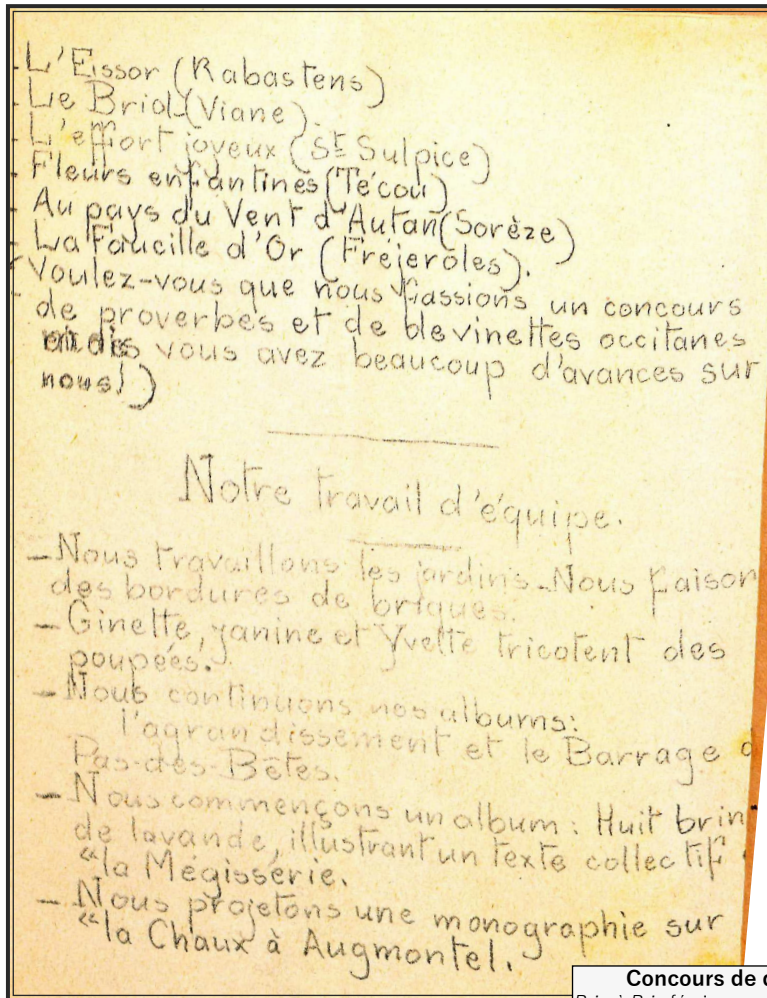 - L'Eissor (Rabastens)
- Le Briol (Viane).
- L'effort joyeux (St Sulpice)
- Fleurs enfantines (Técou)
- Au pays du Vent d'Autan (Sorèze)
- La Faucille d'Or (Fréjeroles).
(Voulez-vous que nous fassions un concours
de proverbes et de devinettes occitanes
vous avez beaucoup d'avances sur
nous!)
Notre travail d'équipe.
- Nous travaillons les jardins - Nous faison
des bordures de briques.
- Ginette, yanine et Yvette tricotent des
poupées.
- Nous continuons nos albums:
l'agrandissement et le Barrage d
Pas-des-Bêtes.
- Nous commençons un album : Huit brin
de lavande, illustrant un texte collectif
"la Mégisserie.
- Nous projetons une monographie sur
"la Chaux à Augmontel.
Concours de